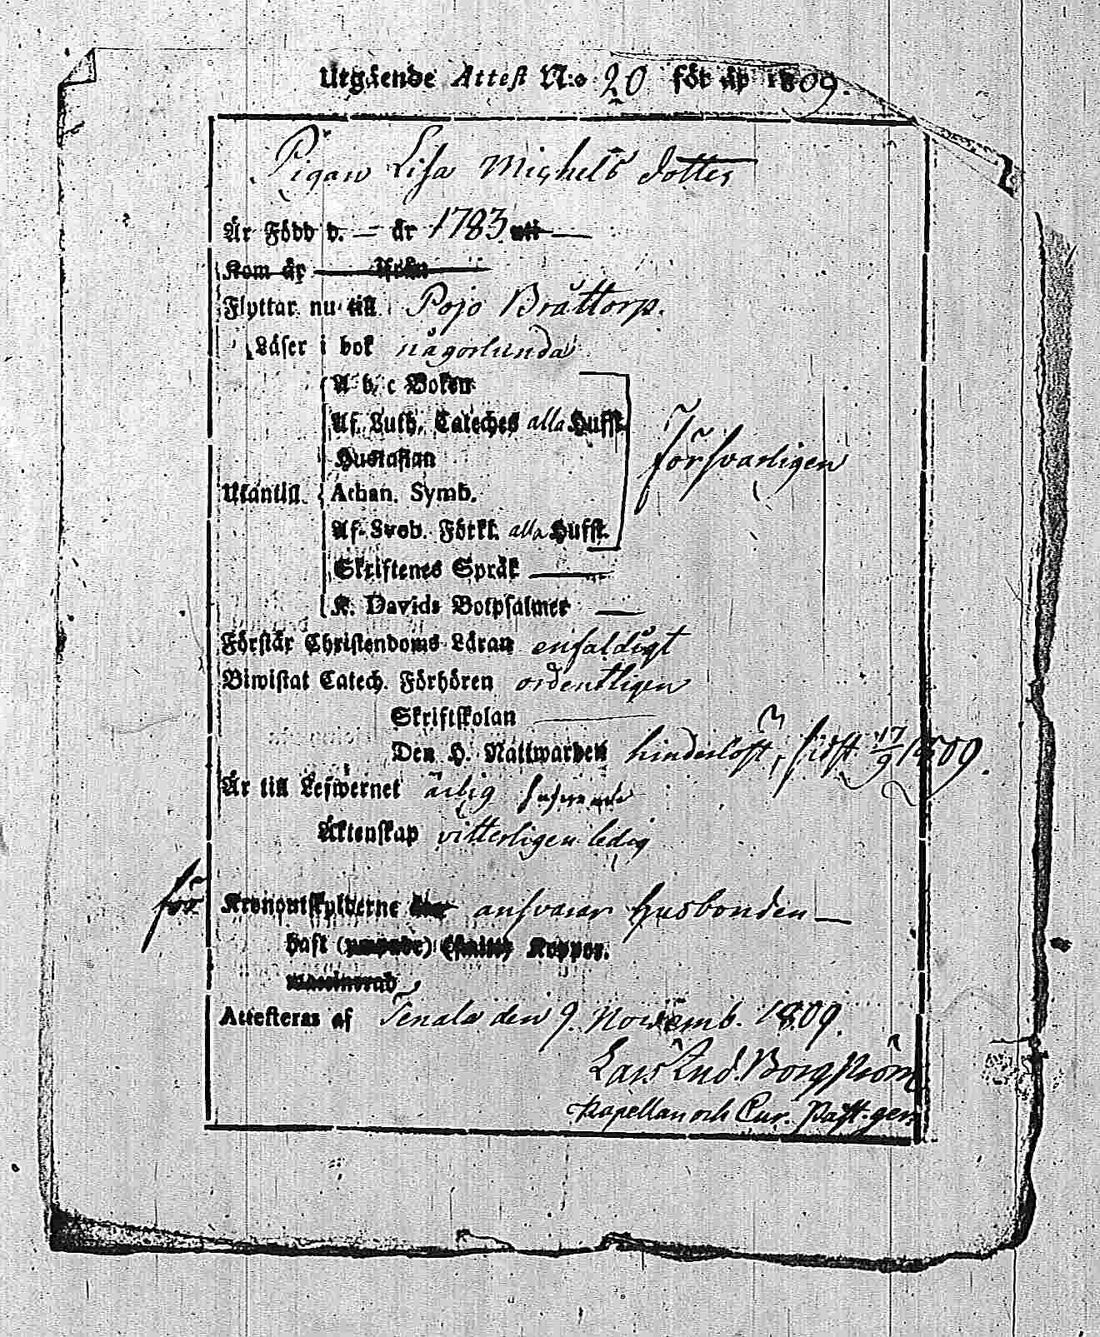 Utgående Attest N:o 20 för år 1809.
Pigan Lisa Michels dotter
Är Född d. — år 1783 uti —
Kom år ifrån
Flyttar nu till Pojo Bråttorp.
Läser i bok någorlunda
A b c Boken
Af Luth. Cateches alla Hufst.
Hustaflan
Försvarligen
Utantill Athan. Symb.
Af Sveb. Förkl. alla Hufst.
Skriftenes Språk —
K. Davids Botpsalmer —
Förstår Christendoms Läran enfaldigt
Biwistat Catech. Förhören ordentligen
Skriftskolan —
Den H. Nattwarden hinderlöst, sidst 17/9 1809.
Är till Lefwernet ärlig
Äktenskap vitterligen ledig
för Kronoutskylderne ansvarar husbonden —
haft Koppor.
Attesteras af Tenala den 9 Novemb. 1809.
Lars And. Borgström
Kapellan och Cur. Past. gen.